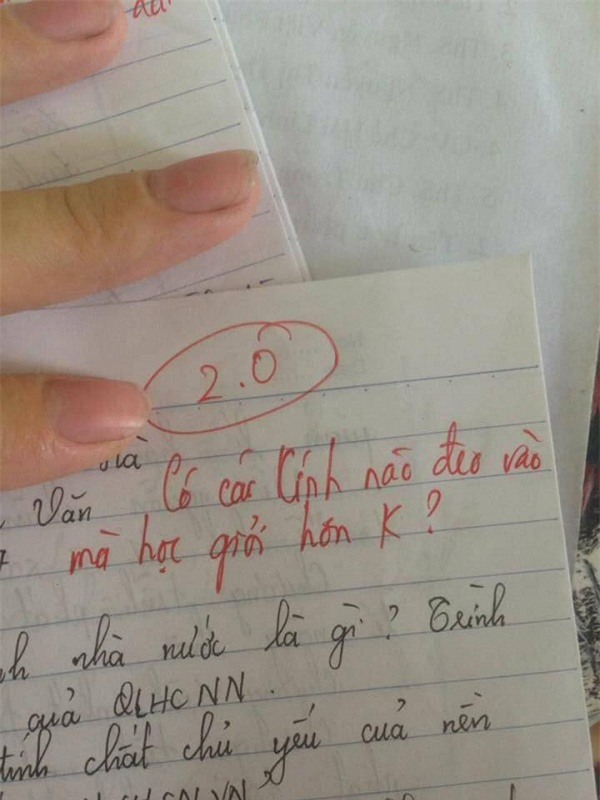 2.0
Có các kính nào đeo vào
Văn
mà học giỏi hơn K?
nhà nước là gì? Trình
quả QLHCNN.
tính chất chủ yếu của nền